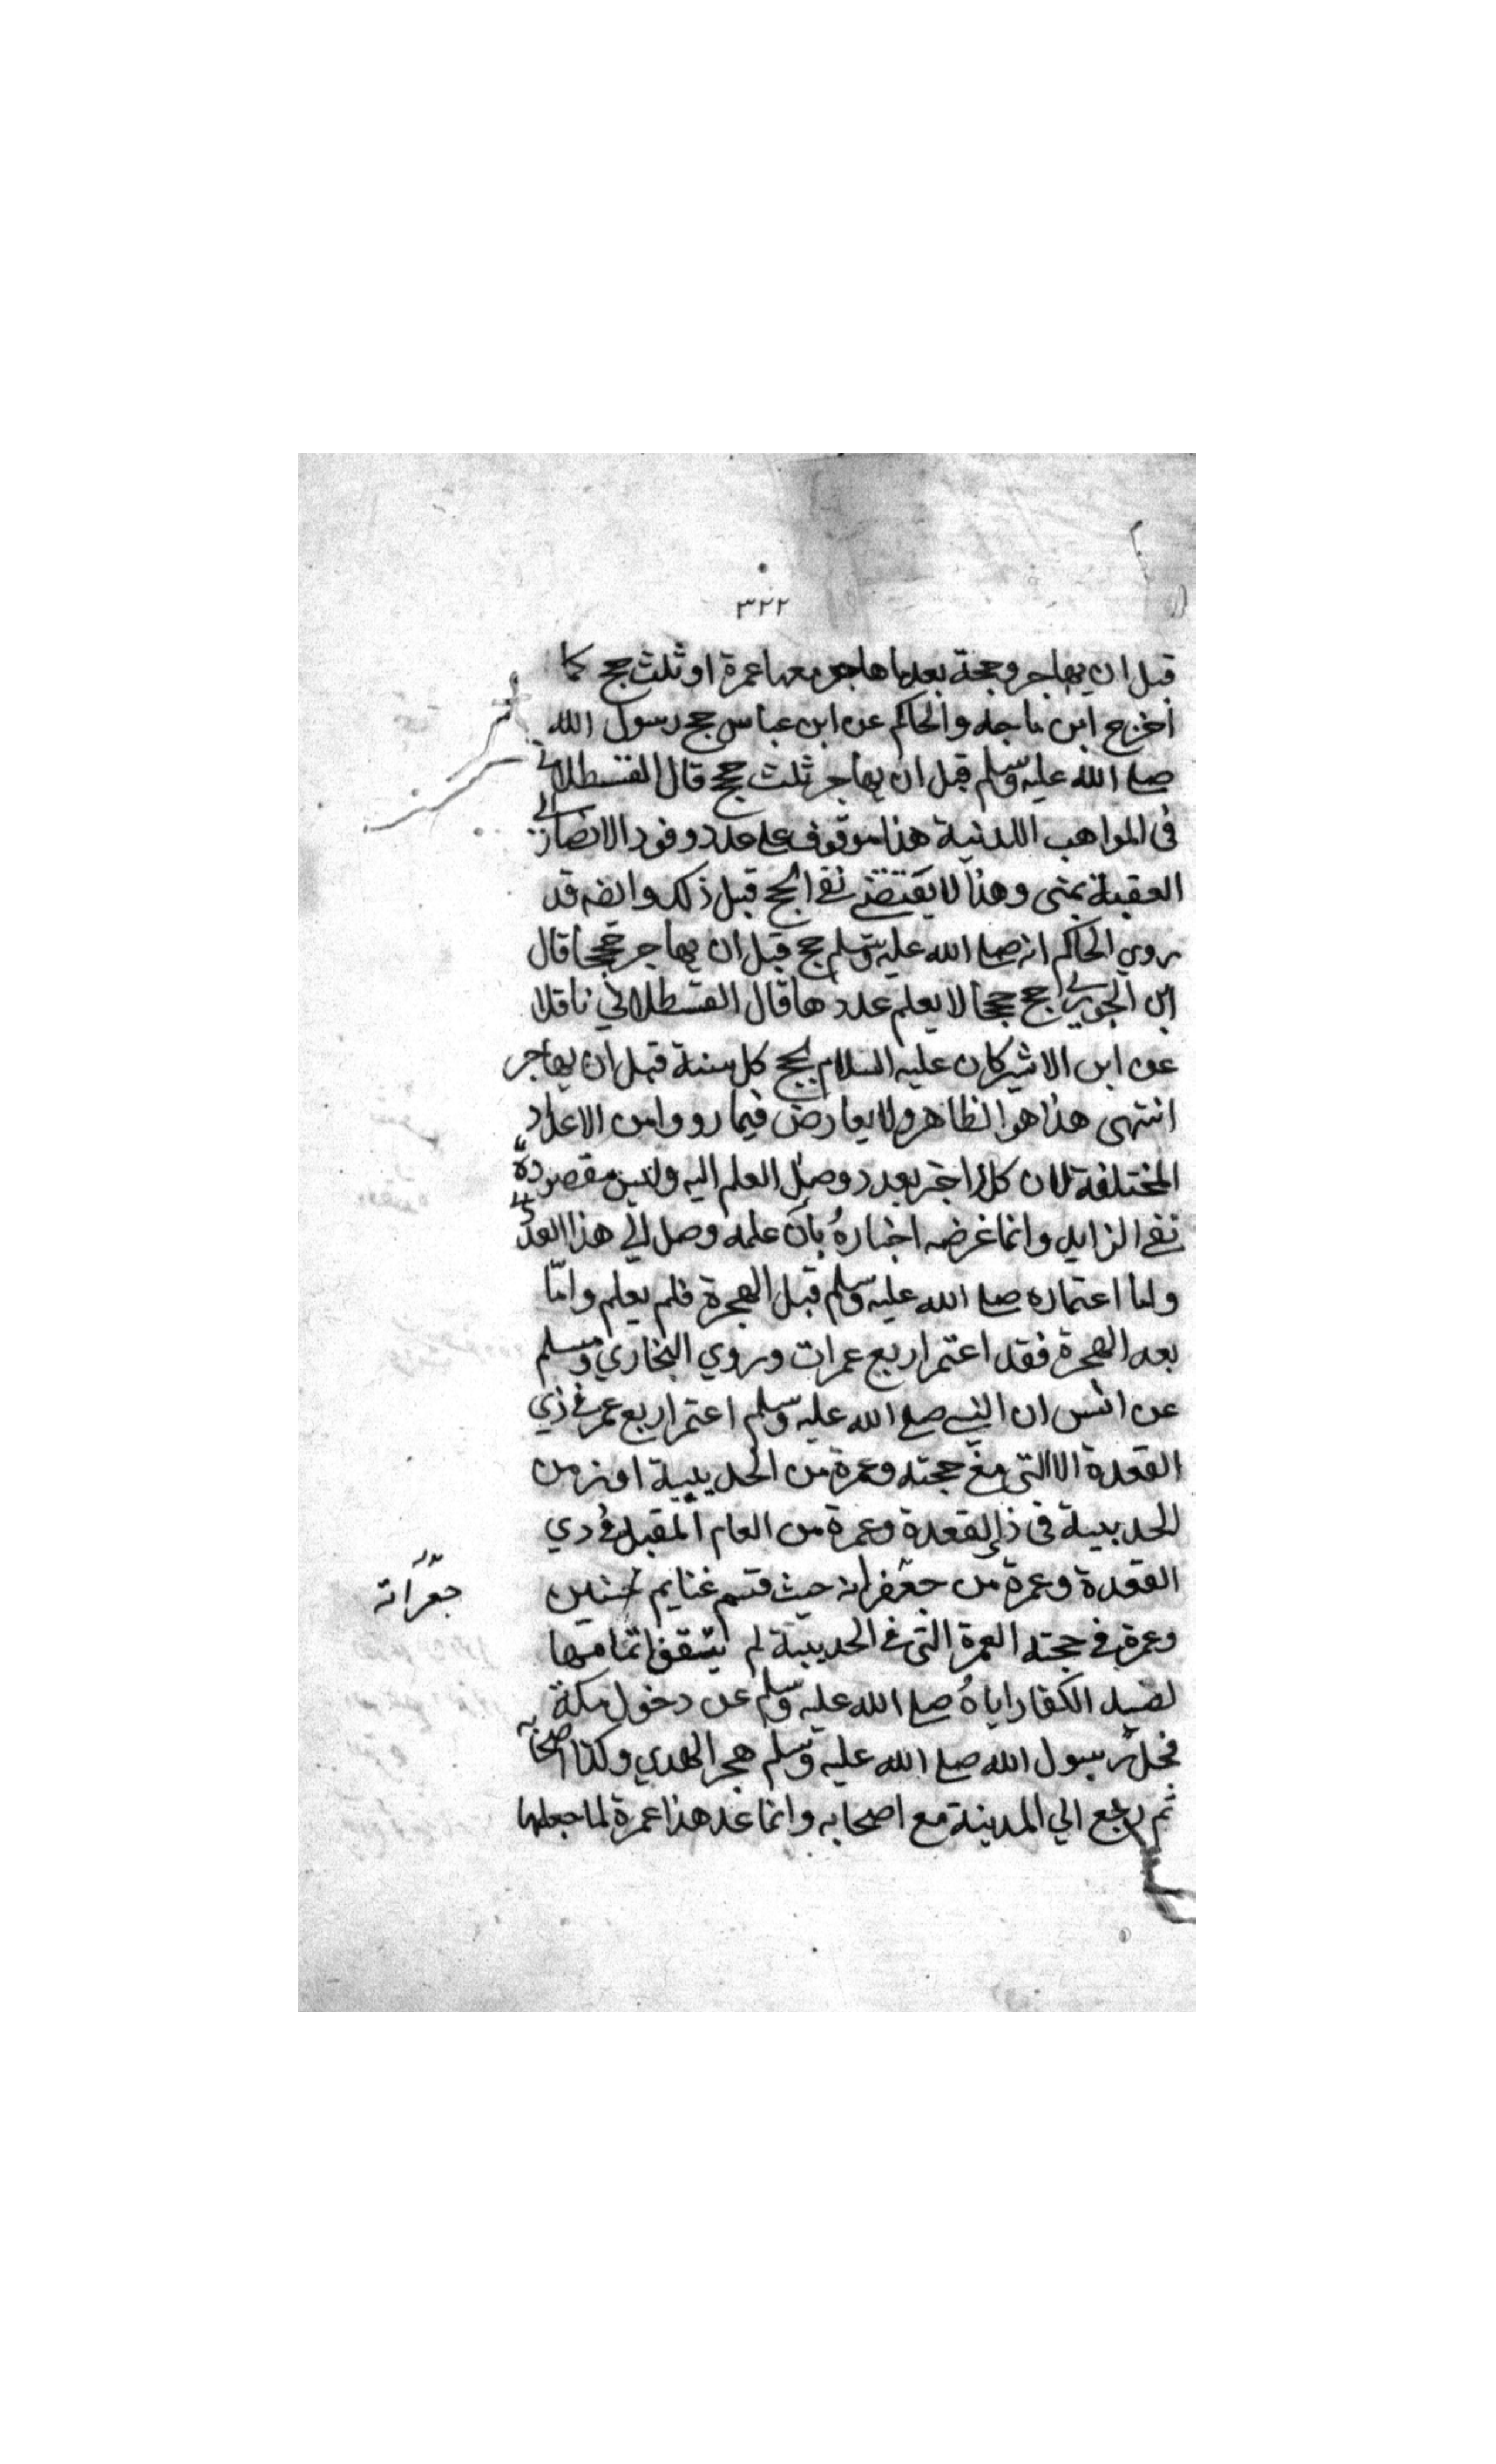 ٣٢٢
قبل ان يهاجر وحجة بعدما هاجر معها عمرة او ثلث حجج كما
اخرج ابن ماجه والحاكم عن ابن عباس حج رسول الله
صلى الله عليه وسلم قبل ان يهاجر ثلث حجج قال القسطلاني
في المواهب اللدنية هذا موقوف على عدد وفود الانصار الى
العقبة بمنى وهذا لا يقتضي نفي الحج قبل ذلك وايضه قد
روي الحاكم انه صلى الله عليه وسلم حج قبل ان يهاجر حججا قال
ابن الجوزي حج حججا لا يعلم عددها قال القسطلاني ناقلا
عن ابن الاثير كان عليه السلام يحج كل سنة قبل ان يهاجر
انتهى هذا هو الظاهر ولا يعارض فيما رووا من الاعداد
المختلفة لان كلا اخبر بعدد وصل العلم اليه وليس مقصوده
نفي الزايد وانما غرضه اخباره بان علمه وصل الي هذا العدد
واما اعتماره صلى الله عليه وسلم قبل الهجرة فلم يعلم وامّا
بعد الهجرة فقد اعتمر اربع عمرات وروي البخاري ومسلم
عن انس ان النبي صلى الله عليه وسلم اعتمر اربع عمر في ذي
القعدة الا التي مع حجته وعمرة من الحديبية او زمن
الحديبية في ذي القعدة وعمرة من العام المقبل في ذي
القعدة وعمرة من جعفرانه حيث قسم غنايم حنين
جعرانه
وعمرة في حجته العمرة التي في الحديبية لم يتفق اتمامها
لصد الكفار اياهُ صلى الله عليه وسلم عن دخول مكة
فحل رسول الله صلى الله عليه وسلم هجر الهدي وكذا اصحابه
ثم رجع الي المدينة مع اصحابه وانما عد هذا عمرة لما جعلها